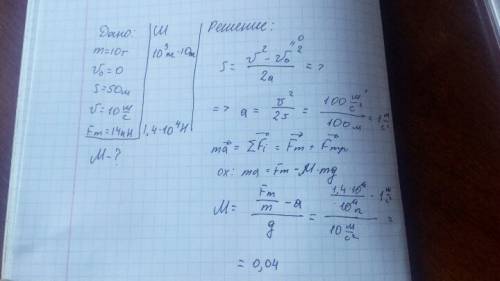 Дано:
m=10т
v₀=0
S=50м
v=10 м/с
Fт=14кН
М-?
10³т·10т
1,4·10⁴Н
Решение:
S = (v² - v₀²)/2a = >
=> a = v²/2S = 100 м²/с² / 100 м = 1 м/с²
ma⃗ = ΣF⃗i = F⃗т + F⃗тр
ох: ma = Fт - М·mg
М = (Fт/m - a)/g = (1,4·10⁴/10⁴ п - 1 м/с²)/(10 м/с²) =
= 0,04